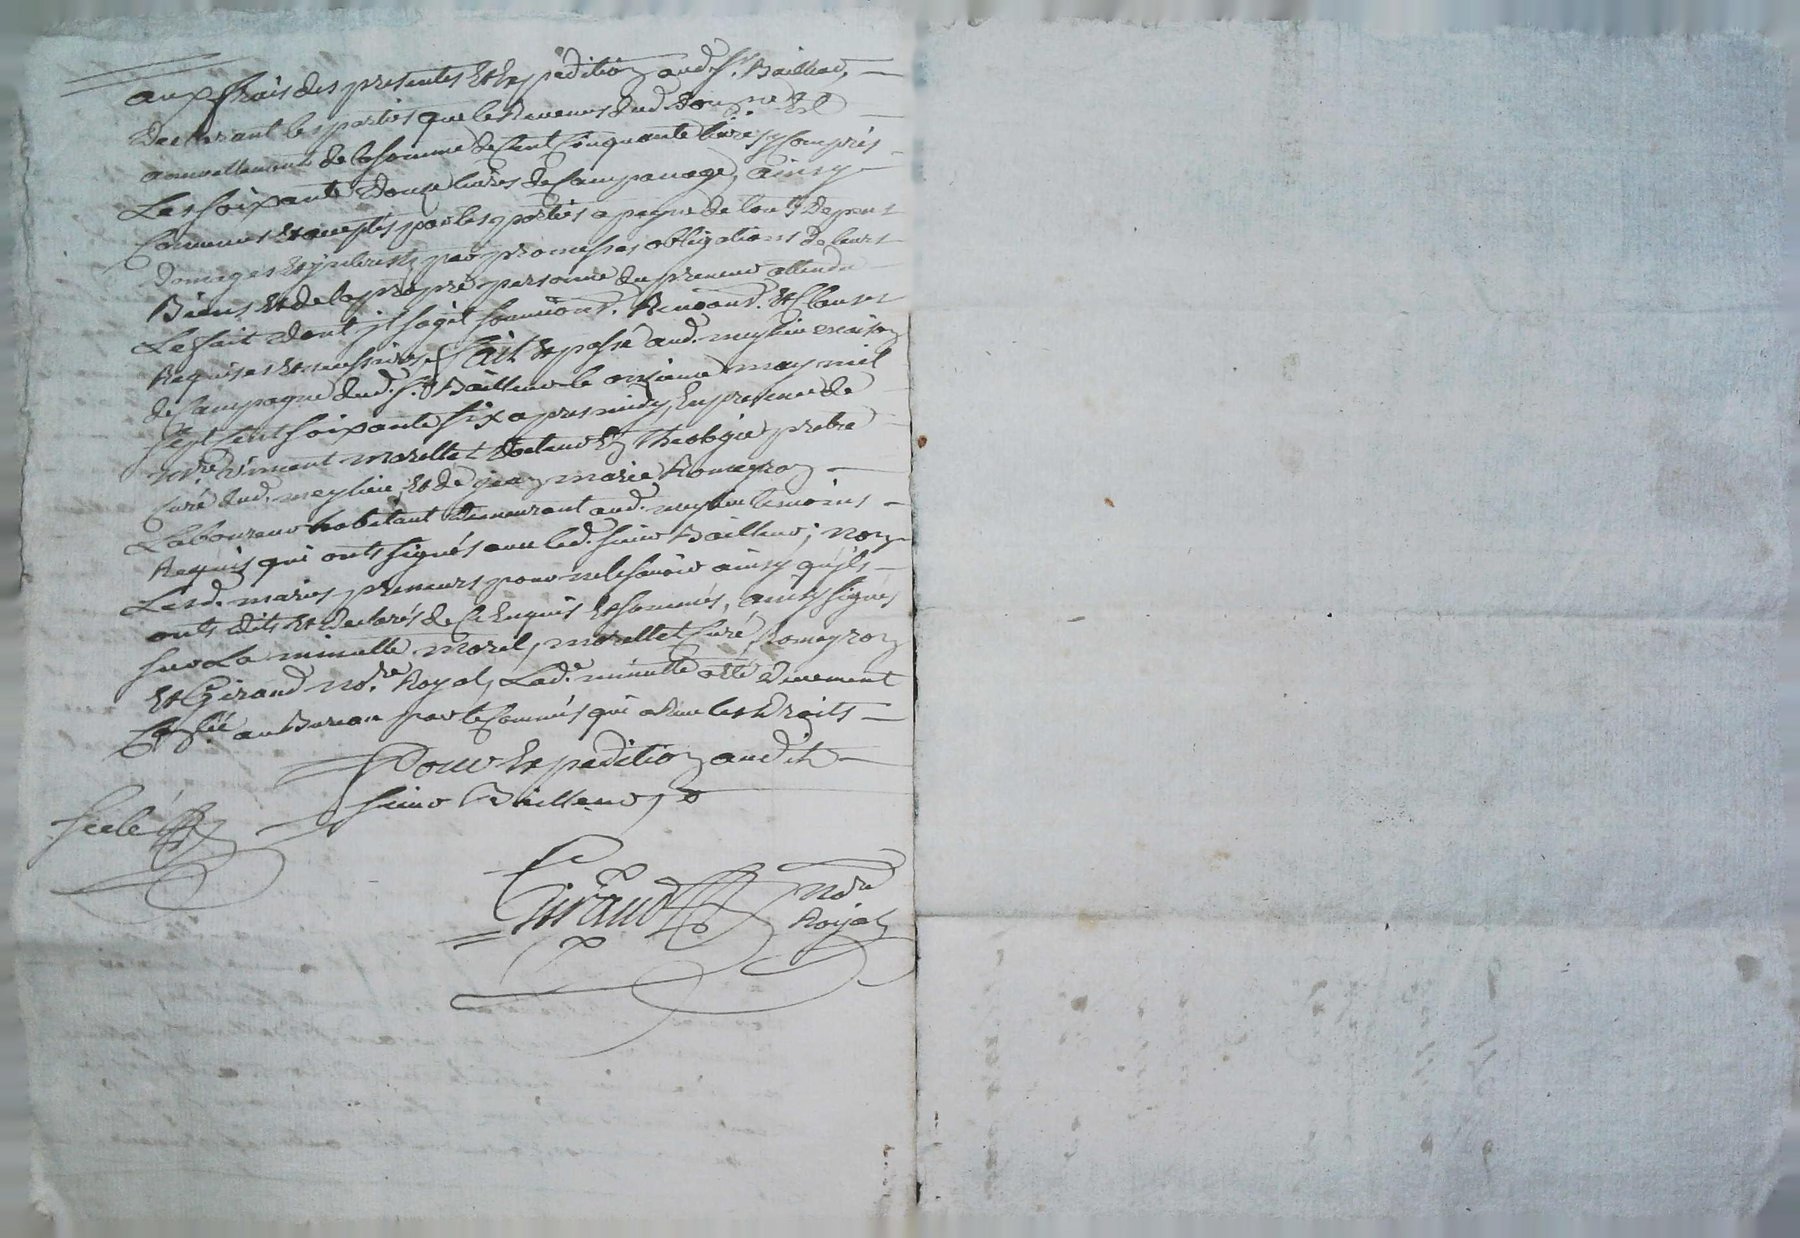 aux frais des presentes et expedition aud. Sr. Bailleur,
declarant les parties que le Revenu dud. domaine est
annuellement de la somme de Cent Cinquante livres y Compris
Les soixante douze livres de Campanage, ainsy
Convenus et acceptés par les parties a peyne de touts depens
domages et interests, par promesses obligations de leurs
Biens et de la propre personne du preneur attendu
Le fait dont il s'agit soumitions. Renonond. et Clauses
Requises et necessaires, fait et passé aud. meylieu maison
de Campagne dud. Sr. Bailleur le onzieme may mil
sept Cent soixante six apres midy, En presence de
Mre. Vincent Morellet docteur En theologie pretre
Curé dud. meylieu, et de jean marie Romeyron
Laboureur habitant demeurant aud. meylieu temoins
Requis qui onts signés avec led. sieur Bailleur, non
Lesd. mariés preneurs pour ne le savoir ainsy qu'ils
onts dits et declarés de Ce Enquis et sommés, ainsy signés
sur La minutte Morel, Morellet Curé, Romeyron
et Giraud no.re Royal, Lad.e minutte a été duement
au Bureau par le Commis qui a Reçu les droits
Pour Expedition audit
sieur Bailleur
scelé
Giraud
no.re
Royal